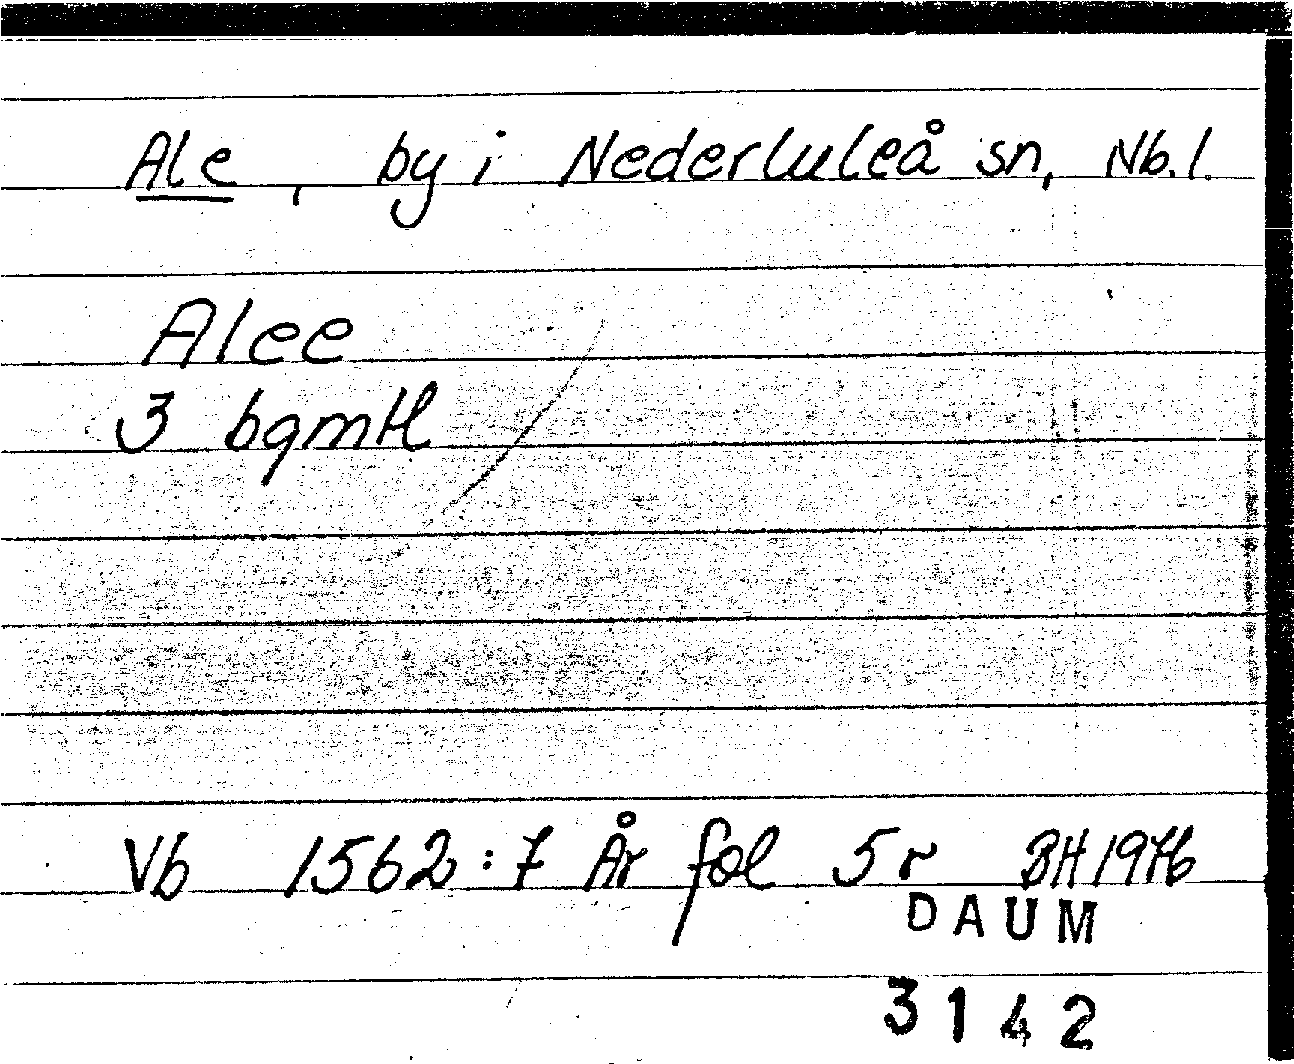 Ale, by i Nederluleå sn, Nb. l.
Alee
3 bgmtl
Vb 1562:7 År fol 5 r BH 1976
DAUM
3142